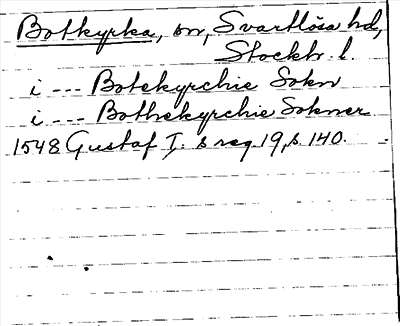 Botkyrka, sn, Svartlösa hd,
Stockh. l.
i --- Botekyrchie Sokn
i --- Bothekyrchie Sokner
1548 Gustaf I:s reg. 19, s. 140.